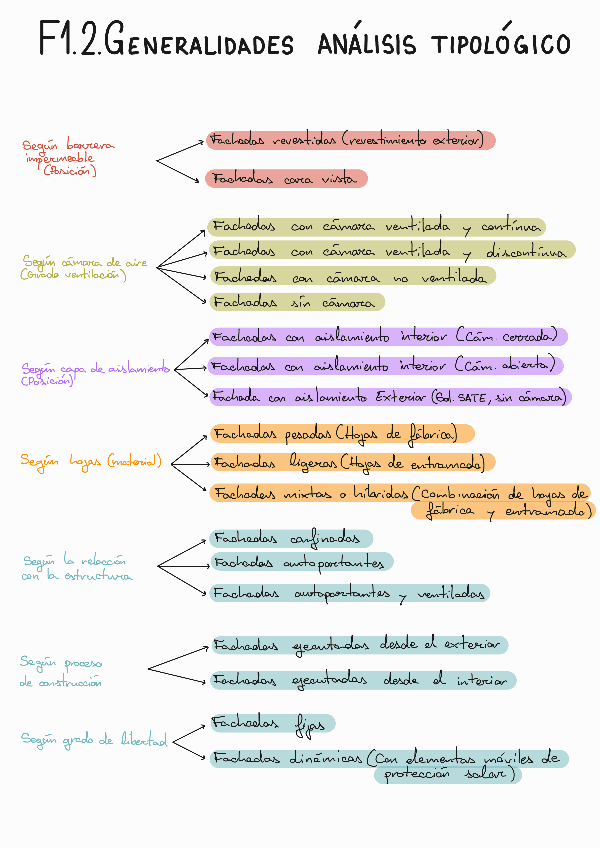 F1.2. GENERALIDADES ANÁLISIS TIPOLÓGICO
Según barrera
impermeable
(Posición)
Fachadas revestidas (revestimiento exterior)
Fachadas cara vista
Según cámara de aire
(Grado ventilación)
Fachadas con cámara ventilada y contínua
Fachadas con cámara ventilada y discontínua
Fachadas con cámara no ventilada
Fachadas sin cámara
Según capa de aislamiento
(Posición)
Fachadas con aislamiento interior (Cám. cerrada)
Fachadas con aislamiento interior (Cám. abierta)
Fachada con aislamiento Exterior (Sol. SATE, sin cámara)
Según hojas (material)
Fachadas pesadas (Hojas de fábrica)
Fachadas ligeras (Hojas de entramado)
Fachadas mixtas o híbridas (Combinación de hojas de
fábrica y entramado)
Según la relación
con la estructura
Fachadas confinadas
Fachadas autoportantes
Fachadas autoportantes y ventiladas
Según proceso
de construcción
Fachadas ejecutadas desde el exterior
Fachadas ejecutadas desde el interior
Según grado de libertad
Fachadas fijas
Fachadas dinámicas (Con elementos móviles de
protección solar)